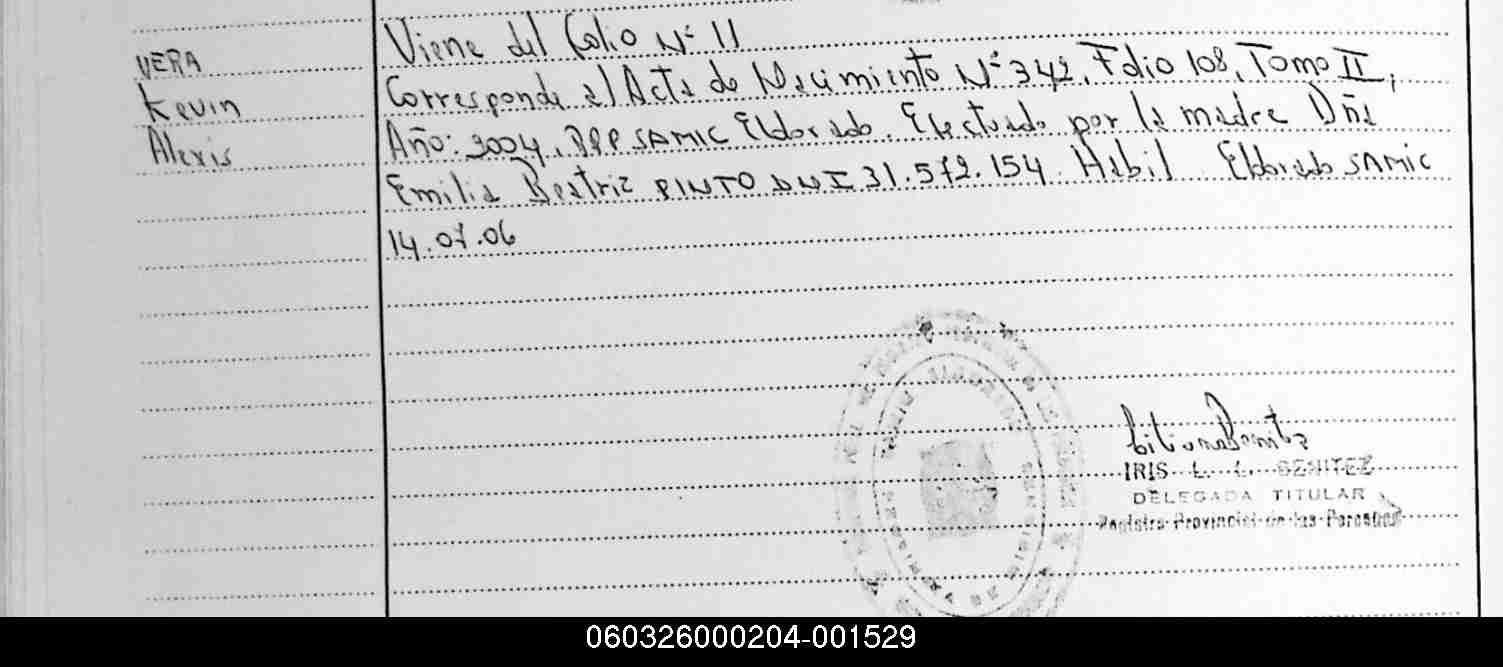 VERA
Kevin
Alexis
Viene del Folio Nº 11
Corresponde al Acta de Nacimiento Nº 342, Folio 108, Tomo II,
Año: 2004, RPP SAMIC Eldorado. Efectuado por la madre Dña
Emilia Beatriz PINTO DNI 31.572.154. Habil. Eldorado SAMIC
14.07.06
IRIS L. L. BENITEZ
DELEGADA TITULAR
Registro Provincial de las Personas
060326000204-001529